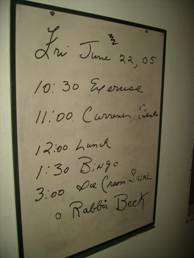 Fri June 22, 05
10:30 Exercise
11:00 Current Events
12:00 Lunch
1:30 Bingo
3:00 Ice Cream Social
Rabbi Beck